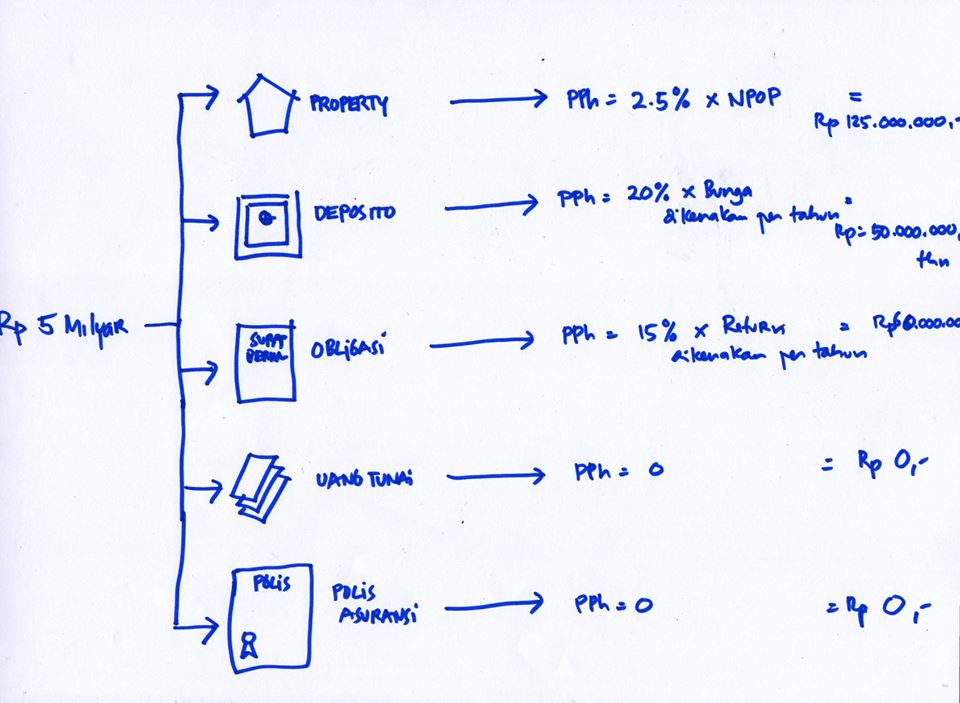 PROPERTY
PPh = 2.5% x NPOP =
Rp 125.000.000,-
DEPOSITO
PPh = 20% x Bunga
dikenakan per tahun =
Rp=50.000.000,
thn
Rp 5 Milyar
SURAT
OBLIGASI
PPh = 15% x Return = Rp60.000.00
dikenakan per tahun
UANG TUNAI
PPh = 0 = Rp 0,-
POLIS
POLIS
ASURANSI
PPh = 0 = Rp 0,-